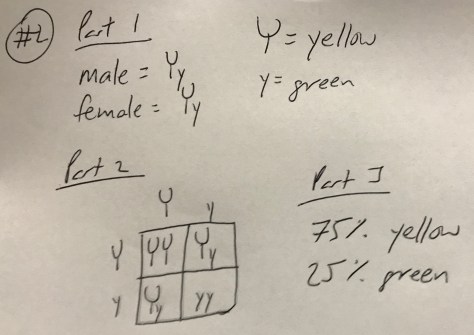 #2 Part 1
male = Yy
female = Yy
Y = yellow
y = green
Part 2
Y y
Y YY Yy
y Yy yy
Part 3
75% yellow
25% green